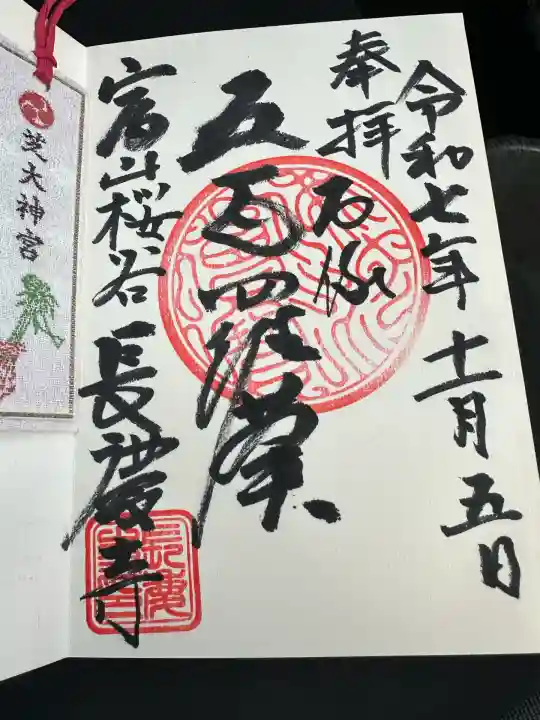 令和七年十一月五日
奉拝 石像
五百羅漢
富山桜谷 長慶寺
芝大神宮